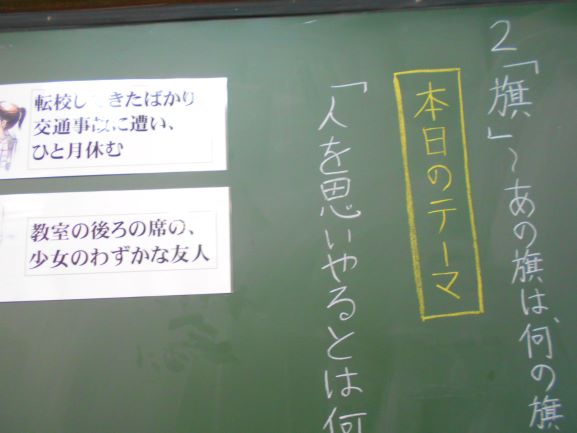 2「旗」~あの旗は、何の旗
本日のテーマ
「人を思いやるとは何
転校してきたばかり
交通事故に遭い、
ひと月休む
教室の後ろの席の、
少女のわずかな友人